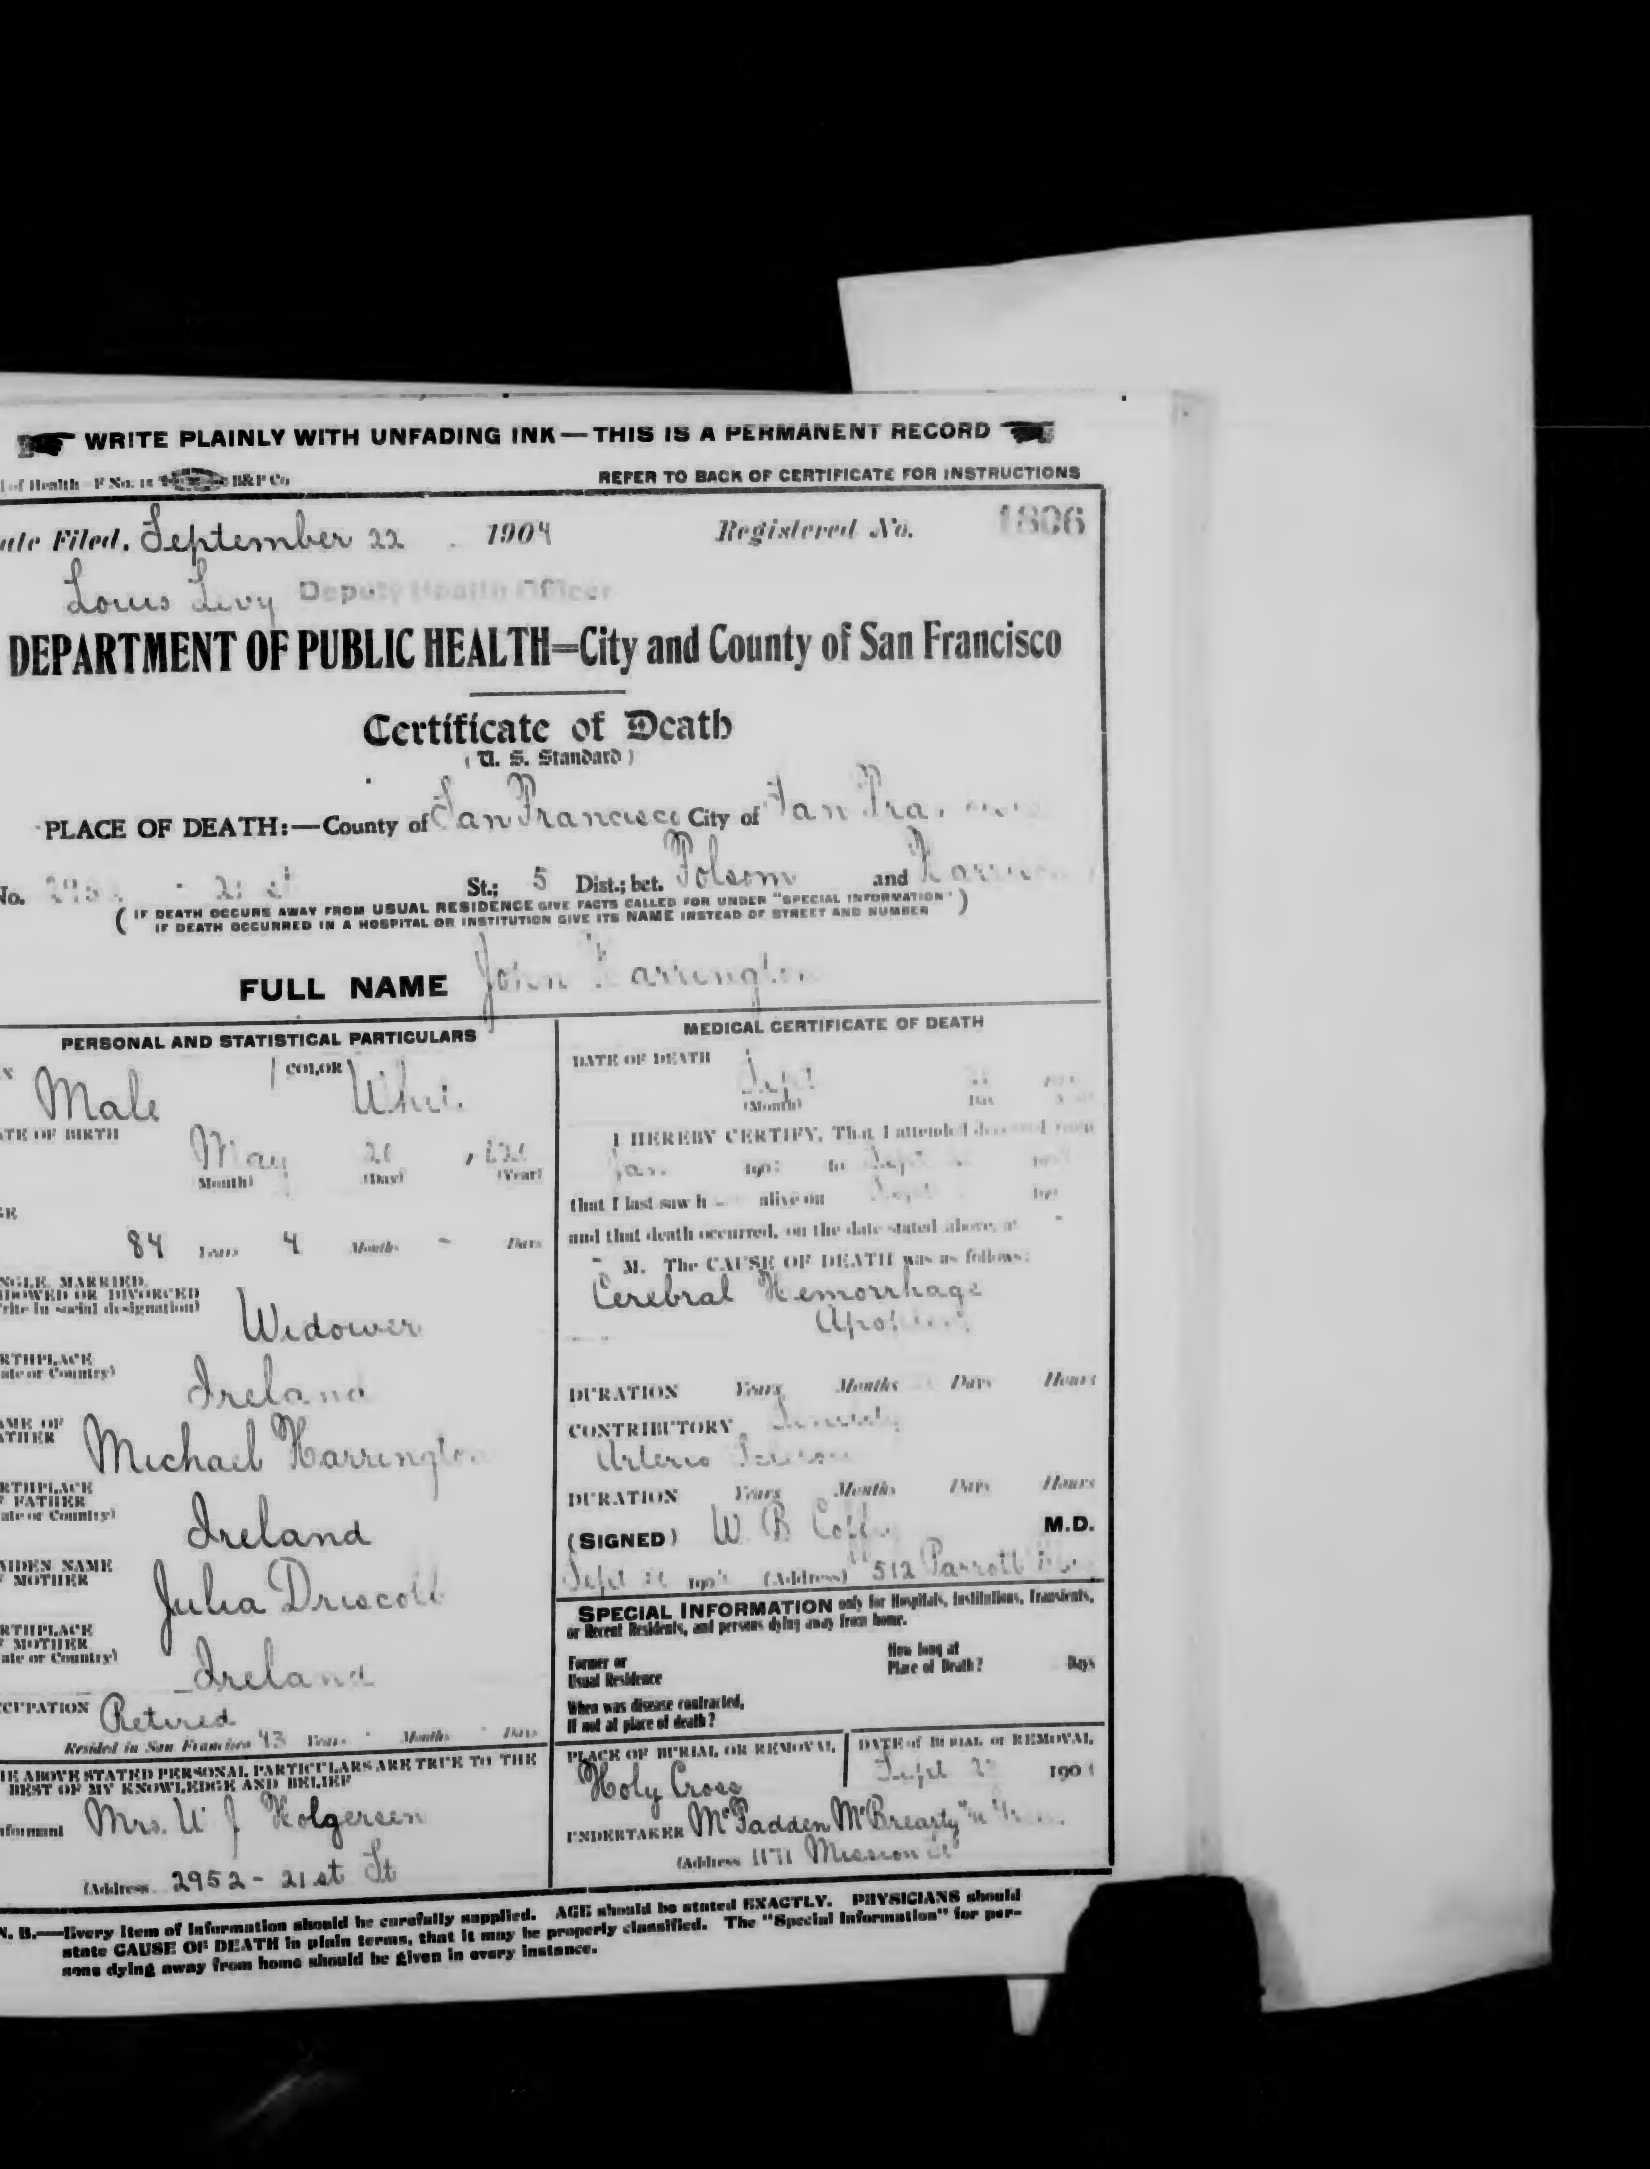 WRITE PLAINLY WITH UNFADING INK—THIS IS A PERMANENT RECORD
of Health—F No. 15 B&P Co
REFER TO BACK OF CERTIFICATE FOR INSTRUCTIONS
ate Filed, September 22 1904 Registered No. 1806
Louis Levy Deputy Health Officer
DEPARTMENT OF PUBLIC HEALTH=City and County of San Francisco
Certificate of Death
(U. S. Standard)
PLACE OF DEATH:—County of San Francisco City of San Fra
No. 295 - 21 st St.; 5 Dist.; bet. Folsom and Harrison
(IF DEATH OCCURS AWAY FROM USUAL RESIDENCE GIVE FACTS CALLED FOR UNDER "SPECIAL INFORMATION"
IF DEATH OCCURRED IN A HOSPITAL OR INSTITUTION GIVE ITS NAME INSTEAD OF STREET AND NUMBER)
FULL NAME John Harrington
PERSONAL AND STATISTICAL PARTICULARS
COLOR
Male Whi
ATE OF BIRTH
May 20
Month) (Day) (Year)
GE
84 Years 4 Months - Days
NGLE, MARRIED,
IDOWED OR DIVORCED
rite in social designation)
Widower
RTHPLACE
ate or Country)
Ireland
AME OF
ATHER
Michael Harrington
RTHPLACE
F FATHER
ate or Country)
Ireland
AIDEN NAME
F MOTHER
Julia Driscoll
RTHPLACE
F MOTHER
ate or Country)
Ireland
CCUPATION Retired
Resided in San Francisco 43 Years - Months - Days
HE ABOVE STATED PERSONAL PARTICULARS ARE TRUE TO THE
BEST OF MY KNOWLEDGE AND BELIEF
nformant Mrs. W J Holgersen
(Address 2952 - 21 st St
MEDICAL CERTIFICATE OF DEATH
DATE OF DEATH
Sept
(Month) Day
I HEREBY CERTIFY, That I attended deceased from
Jan. 190 to Sept
that I last saw h alive on Sept
and that death occurred, on the date stated above, at -
- M. The CAUSE OF DEATH was as follows:
Cerebral Hemorrhage
DURATION Years Months Days Hours
CONTRIBUTORY Senility
Arterio
DURATION Years Months Days Hours
(SIGNED) W B Coffey M.D.
Sept 190 (Address) 512 Parrott
SPECIAL INFORMATION only for Hospitals, Institutions, Transients,
or Recent Residents, and persons dying away from home.
Former or
Usual Residence
How long at
Place of Death? Days
When was disease contracted,
If not at place of death?
PLACE OF BURIAL OR REMOVAL
Holy Cross
DATE of BURIAL or REMOVAL
Sept 190
UNDERTAKER McFadden McBrearty
(Address 1171 Mission St
N. B.—Every item of information should be carefully supplied. AGE should be stated EXACTLY. PHYSICIANS should
state CAUSE OF DEATH in plain terms, that it may be properly classified. The "Special Information" for per-
sons dying away from home should be given in every instance.